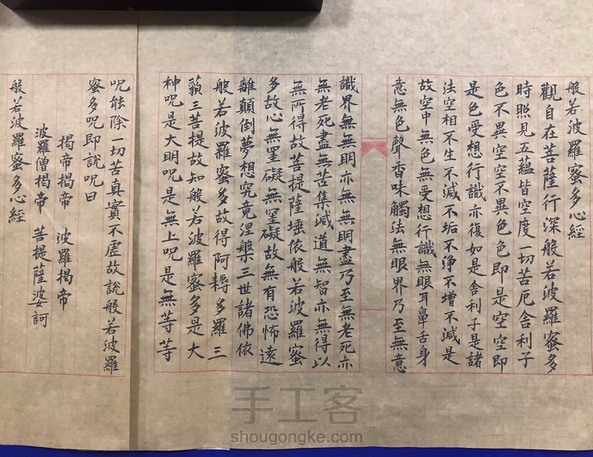 般若波羅蜜多心經
觀自在菩薩行深般若波羅蜜多
時照見五蘊皆空度一切苦厄舍利子
色不異空空不異色色即是空空即
是色受想行識亦復如是舍利子是諸
法空相不生不滅不垢不淨不增不減是
故空中無色無受想行識無眼耳鼻舌身
意無色聲香味觸法無眼界乃至無意
識界無無明亦無無明盡乃至無老死亦
無老死盡無苦集滅道無智亦無得以
無所得故菩提薩埵依般若波羅蜜
多故心無罣礙無罣礙故無有恐怖遠
離顛倒夢想究竟涅槃三世諸佛依
般若波羅蜜多故得阿耨多羅三
藐三菩提故知般若波羅蜜多是大
神呪是大明呪是無上呪是無等等
呪能除一切苦真實不虛故說般若波羅
蜜多呪即說呪曰
揭帝揭帝 波羅揭帝
波羅僧揭帝 菩提薩婆訶
般若波羅蜜多心經
手工客
shougongke.com